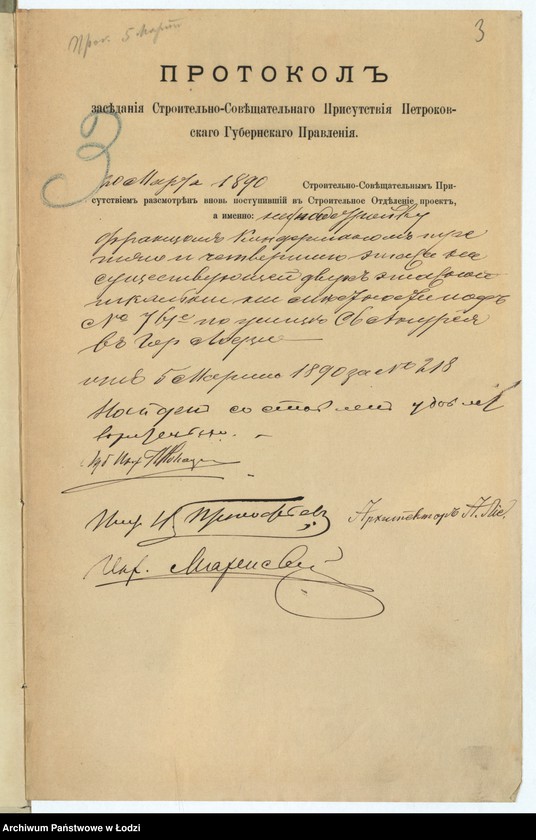 Прок. 5 Марта
3
ПРОТОКОЛЪ
засѣданія Строительно-Совѣщательнаго Присутствія Петроков-
скаго Губернскаго Правленія.
3
Марта 1890 Строительно-Совѣщательнымъ При-
сутствіемъ разсмотрѣнъ вновь поступившій въ Строительное Отдѣленіе проектъ,
а именно: на надстройку
Францомъ Киндерманомъ тре
тьяго и четвертаго этажа на
существующей двухъ этажной
на подъ
№ 761с по улицѣ Св Андрея
въ гор Лодзи
отъ 5 Марта 1890 за № 218
Найденъ составленъ удовле
ворительно.
Губ Инж
Инж Прокофьев
Архитекторъ
Инж.
Archiwum Państwowe w Łodzi